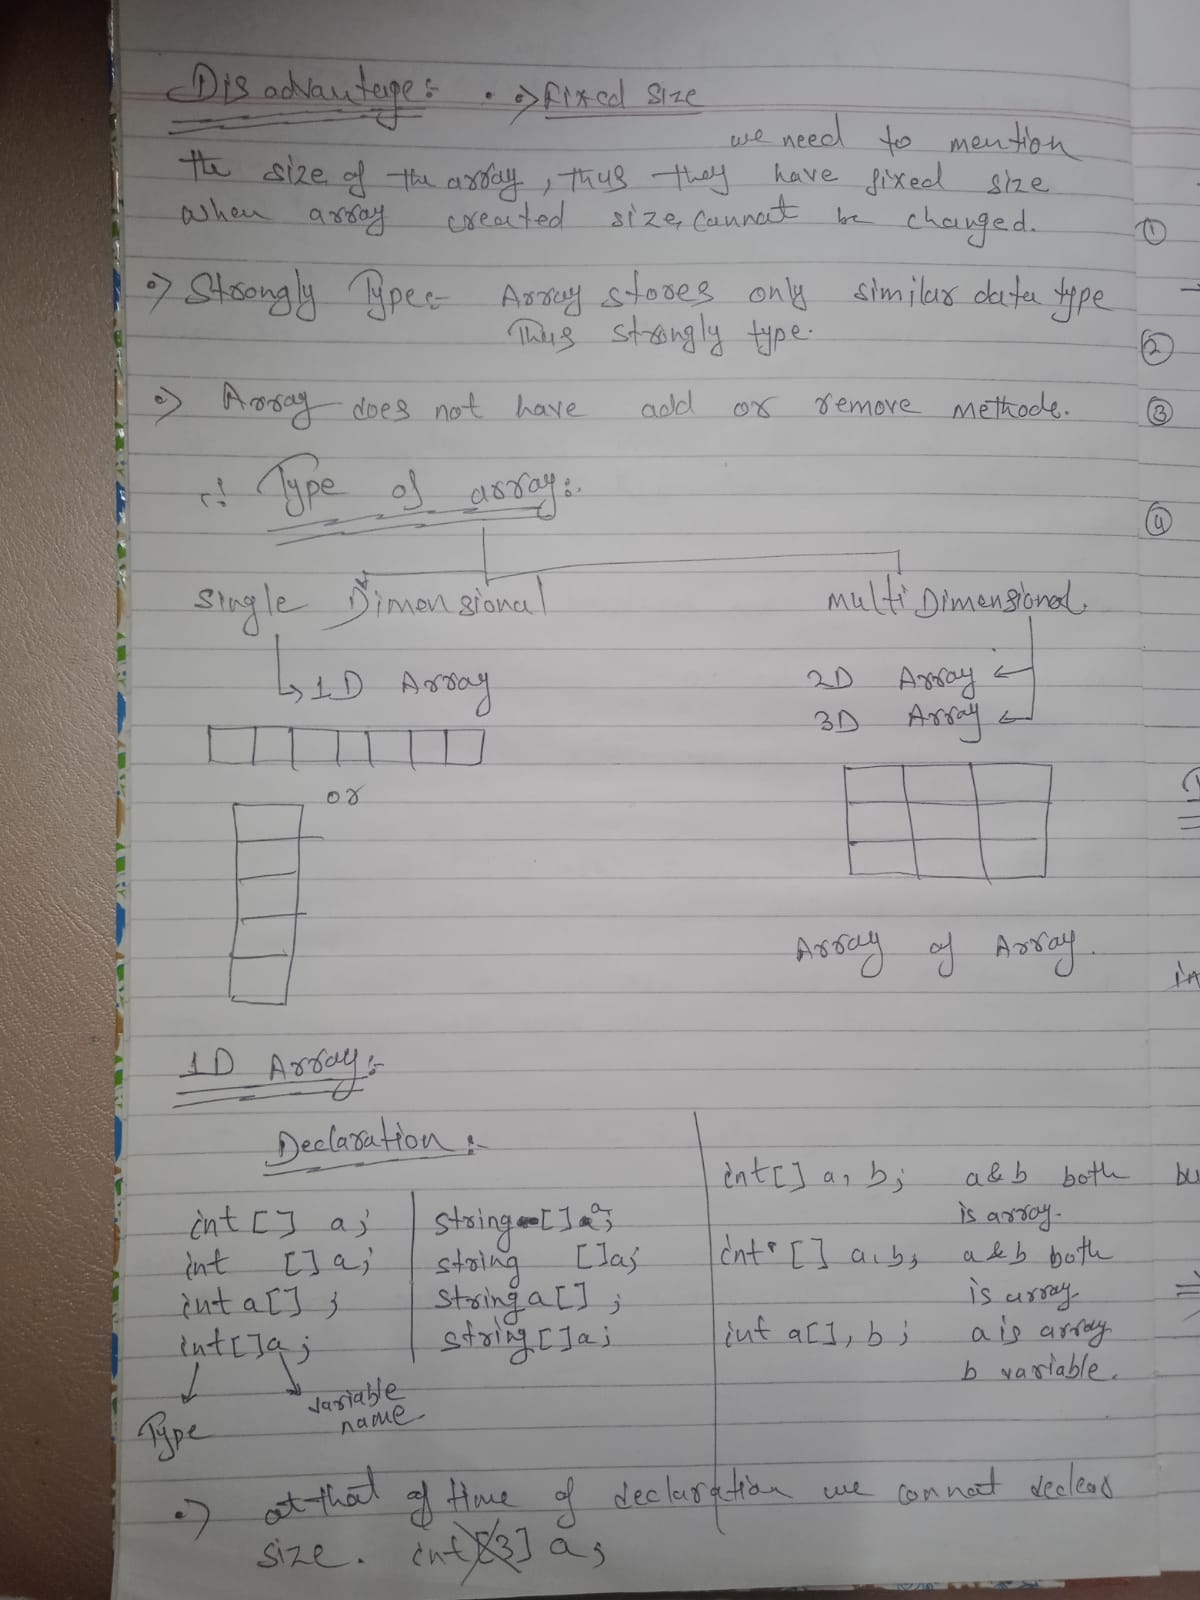 Disadvantage :- •> Fixed Size
we need to mention
the size of the array, thus they have fixed size
when array created size cannot be changed.
•> Strongly Type :- Array stores only similar data type
Thus strongly type.
•> Array does not have add or remove methode.
Type of array :-
Single Dimensional
Multi Dimensional
1D Array
2D Array
3D Array
or
Array of Array.
1D Array :-
Declaration :-
int [] a;
int [] a;
int a[] ;
int[]a;
Type
variable
name
string []a;
string []a;
String a[] ;
string []a;
int[] a, b; a & b both
is array.
int [] a, b; a & b both
is array.
int a[], b ; a is array
b variable.
•) at that of time of declaration we cannot
size. int[3] a;
①
②
③
④